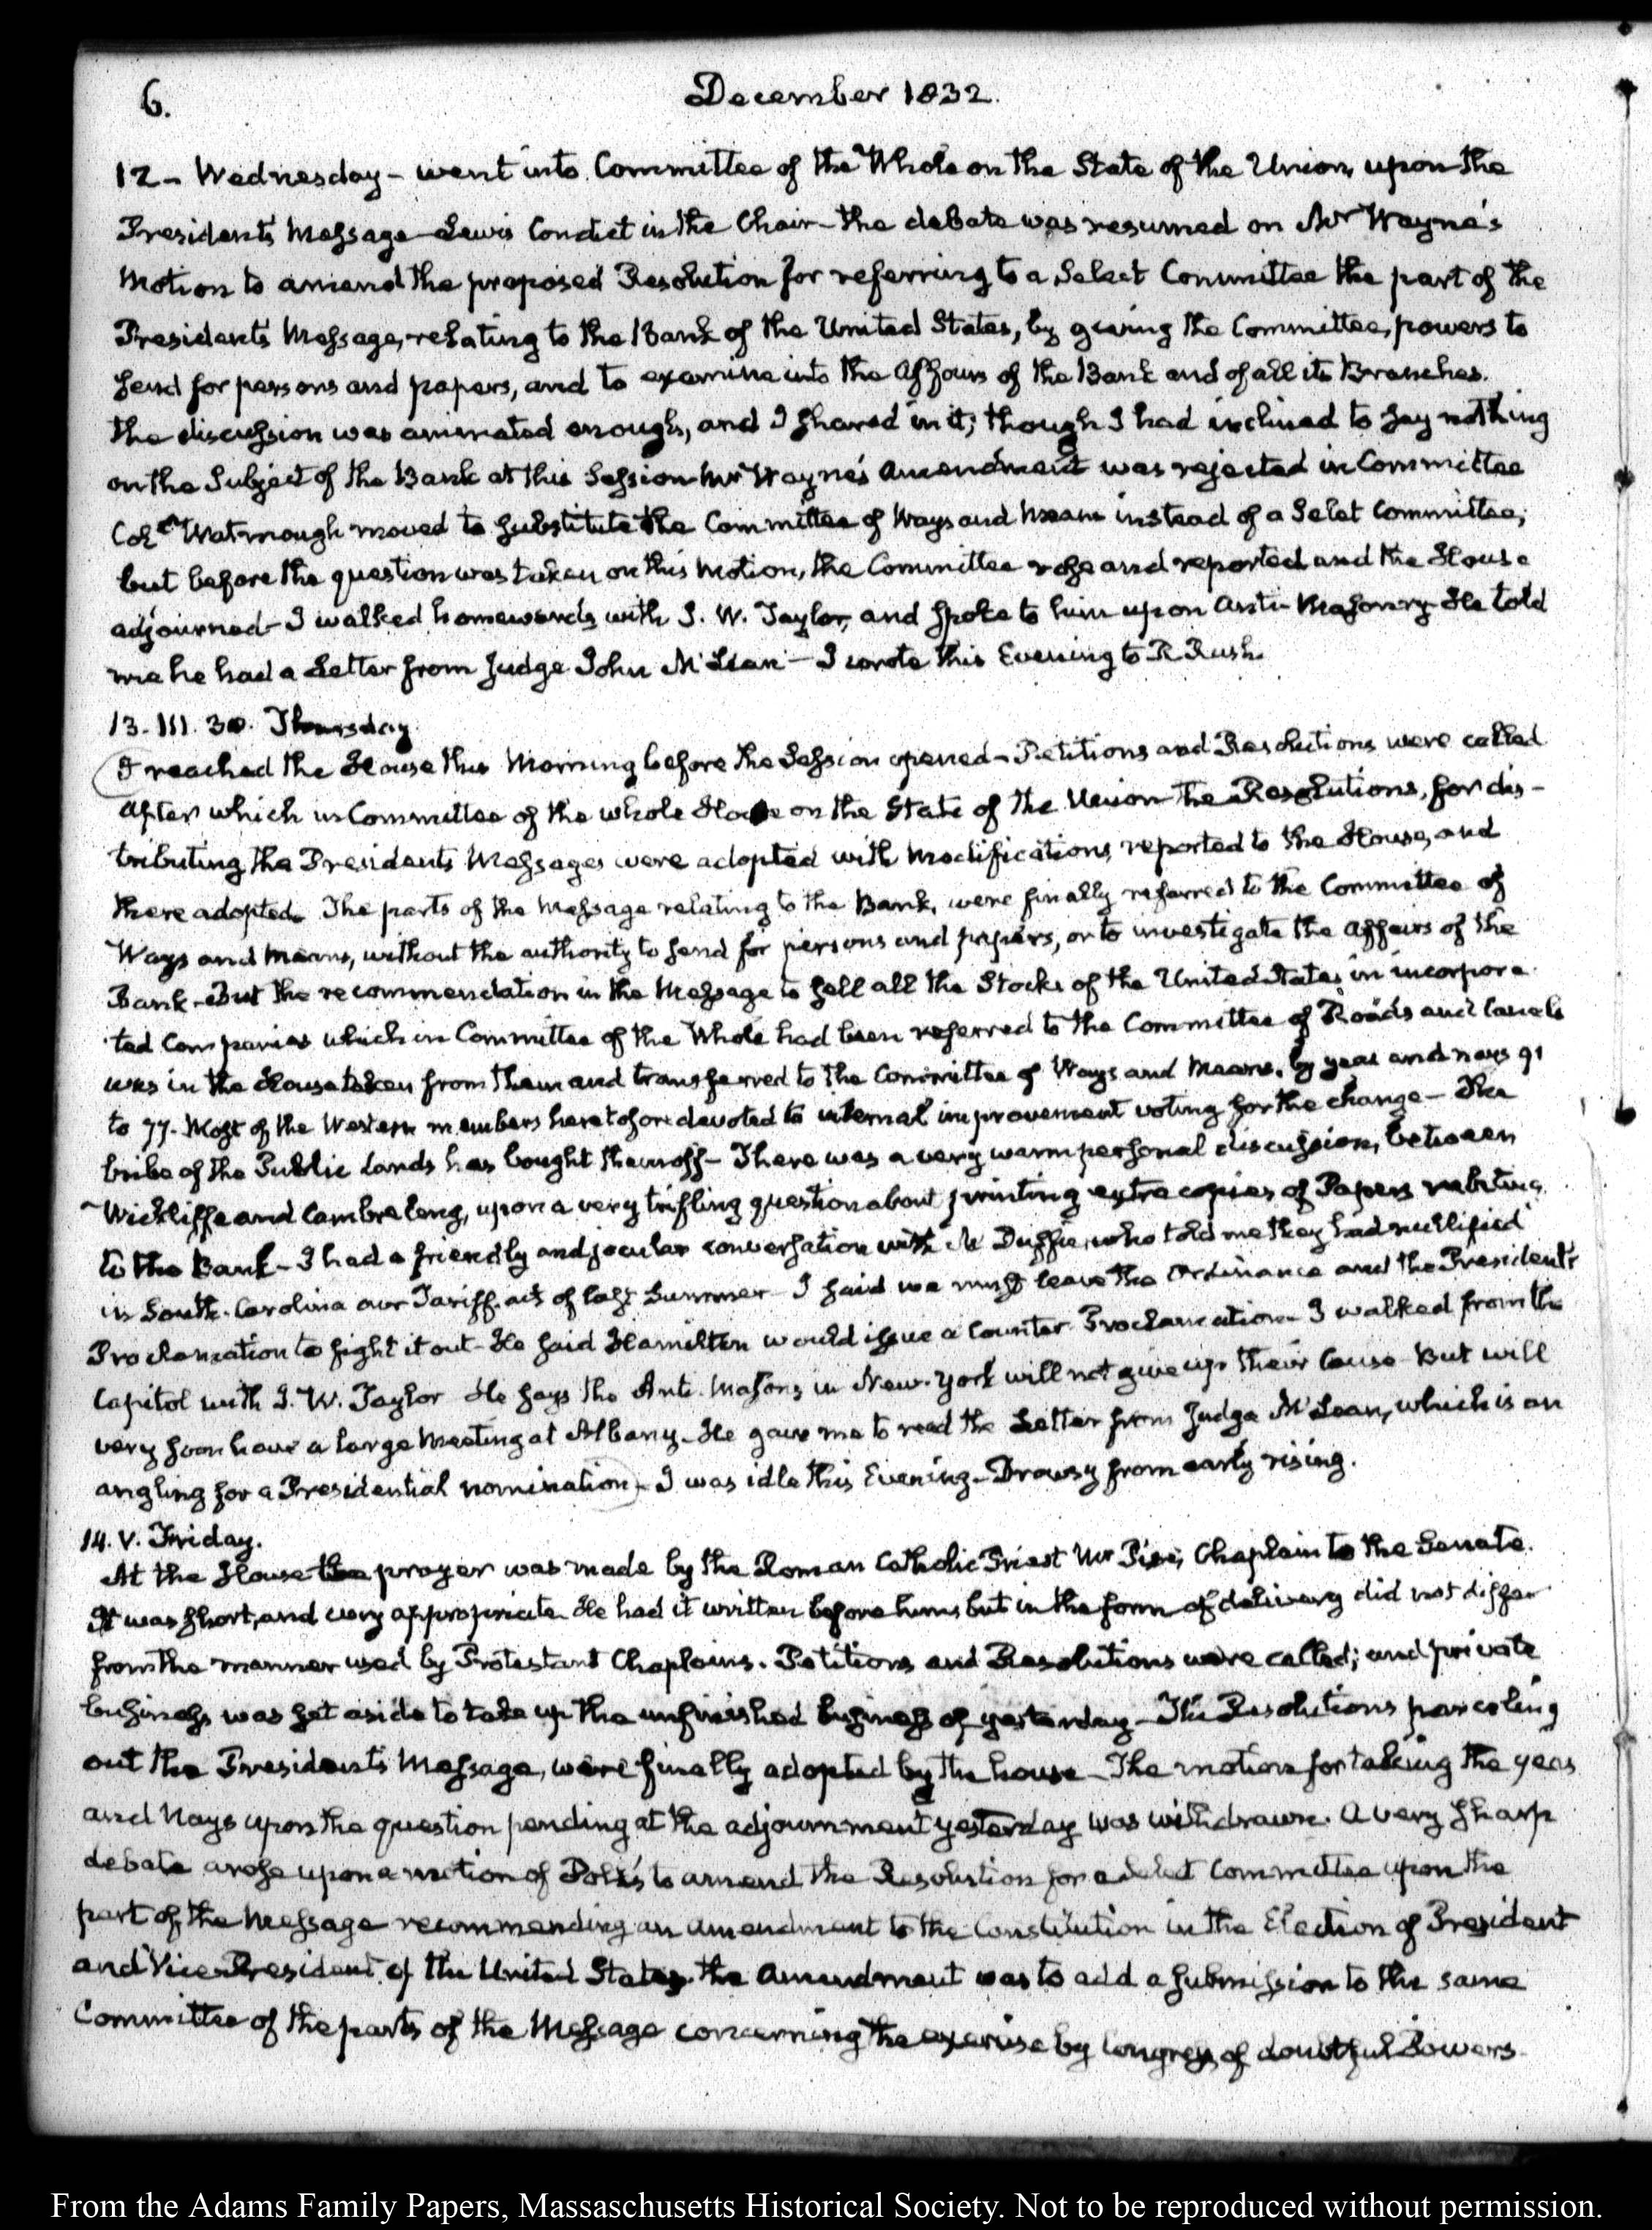 6.
December 1832.
12 - Wednesday - went into Committee of the Whole on the State of the Union, upon the
Presidents Message - Lewis Condict in the Chair - the debate was resumed on Mr Wayne's
motion to amend the proposed Resolution for referring to a Select Committee the part of the
Presidents Message, relating to the Bank of the United States, by giving the Committee, powers to
send for persons and papers, and to examine into the Affairs of the Bank and of all its Branches.
the discussion was animated enough, and I shared in it; though I had inclined to say nothing
on the Subject of the Bank at this Session - Mr Wayne's amendment was rejected in Committee
Coll Watmough moved to substitute the Committee of Ways and Means instead of a Selet Committee;
but before the question was taken on this motion, the Committee rose and reported and the House
adjourned - I walked homewards with J. W. Taylor, and spoke to him upon Anti-Masonry - He told
me he had a Letter from Judge John McLean - I wrote this Evening to R Rush.
13. III. 30. Thursday.
I reached the House this Morning before the Session opened - Petitions and Resolutions were called
after which in Committee of the whole House on the State of the Union the Resolutions, for dis-
tributing the Presidents Messages were adopted with modifications, reported to the House, and
there adopted. The parts of the Message relating to the Bank, were finally referred to the Committee of
Ways and Means, without the authority to send for persons and papers, or to investigate the affairs of the
Bank - But the recommendation in the Message to sell all the Stocks of the United States in incorpora-
ted Companies which in Committee of the Whole had been referred to the Committee of Roads and Canals
was in the House taken from them and transferred to the Committee of Ways and Means, by yeas and nays 91
to 77. Most of the Western members heretofore devoted to internal improvement voting for the change - The
bribe of the Public Lands has bought them off - There was a very warm personal discussion, between
Wickliffe and Cambreleng, upon a very trifling question about printing extra copies of Papers relating
to the Bank - I had a friendly and jocular conversation with Mc Duffie, who told me they had nullified
in South-Carolina our Tariff act of last Summer - I said we must leave the Ordinance and the President's
Proclamation to fight it out - He said Hamilton would issue a Counter Proclamation - I walked from the
Capitol with J. W. Taylor He says the Anti-Masons in New-York will not give up their Cause - But will
very soon have a large Meeting at Albany - He gave me to read the Letter from Judge McLean, which is an
angling for a Presidential nomination - I was idle this Evening - Drowsy from early rising.
14. V. Friday.
At the House the prayer was made by the Roman Catholic Priest Mr Pise, Chaplain to the Senate.
It was short, and very appropriate He had it written before him, but in the form of delivery did not differ
from the manner used by Protestant Chaplains. Petitions and Resolutions were called; and private
business was set aside to take up the unfinished business of yesterday - The Resolutions parceling
out the Presidents Message, were finally adopted by the house - The motion for taking the yeas
and Nays upon the question pending at the adjournment yesterday was withdrawn. A very sharp
debate arose upon a motion of Polk's to amend the Resolution for a select Committee upon the
part of the Message recommending an amendment to the Constitution in the Election of President
and Vice-President of the United States. the amendment was to add a submission to the same
Committee of the parts of the Message concerning the exercise by Congress of doubtful Powers.
From the Adams Family Papers, Massaschusetts Historical Society. Not to be reproduced without permission.